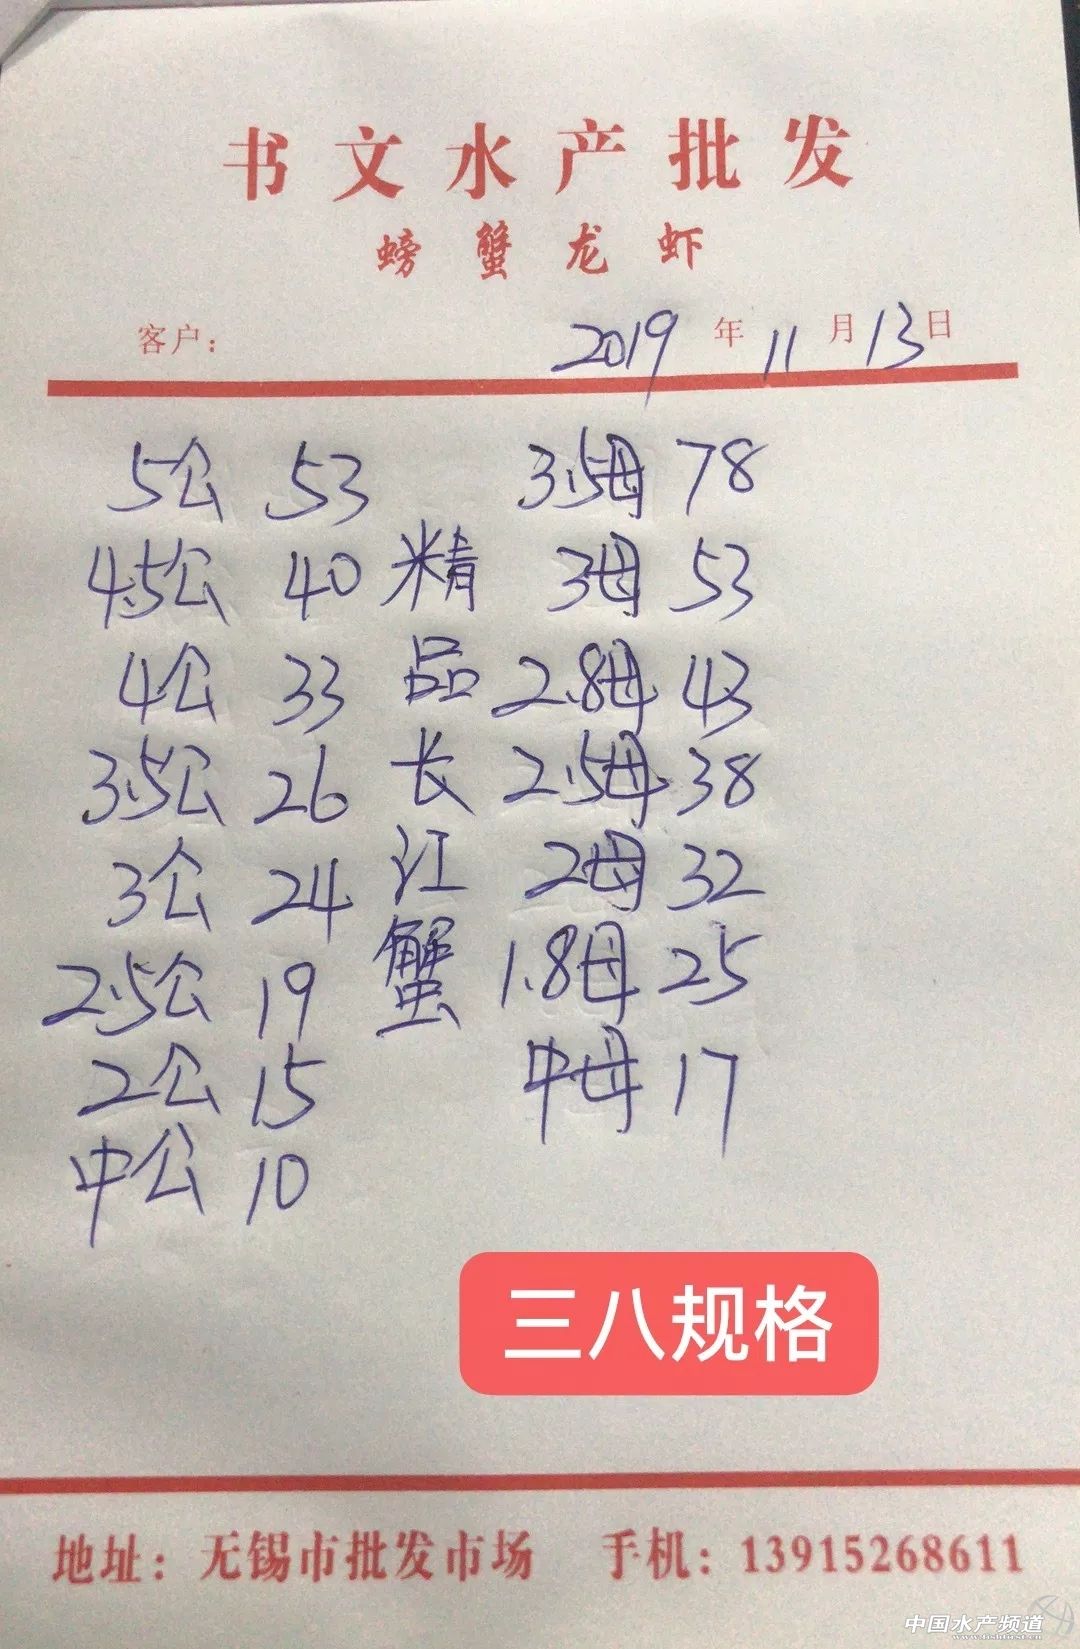 书文水产批发
螃蟹龙虾
客户： 2019年11月13日
5公 53 3.5母 78
4.5公 40 精 3母 53
4公 33 品 2.8母 43
3.5公 26 长 2.5母 38
3公 24 江 2母 32
2.5公 19 蟹 1.8母 25
2公 15 中母 17
中公 10
三八规格
地址：无锡市批发市场 手机：13915268611
中国水产频道
www.fishfirst.cn